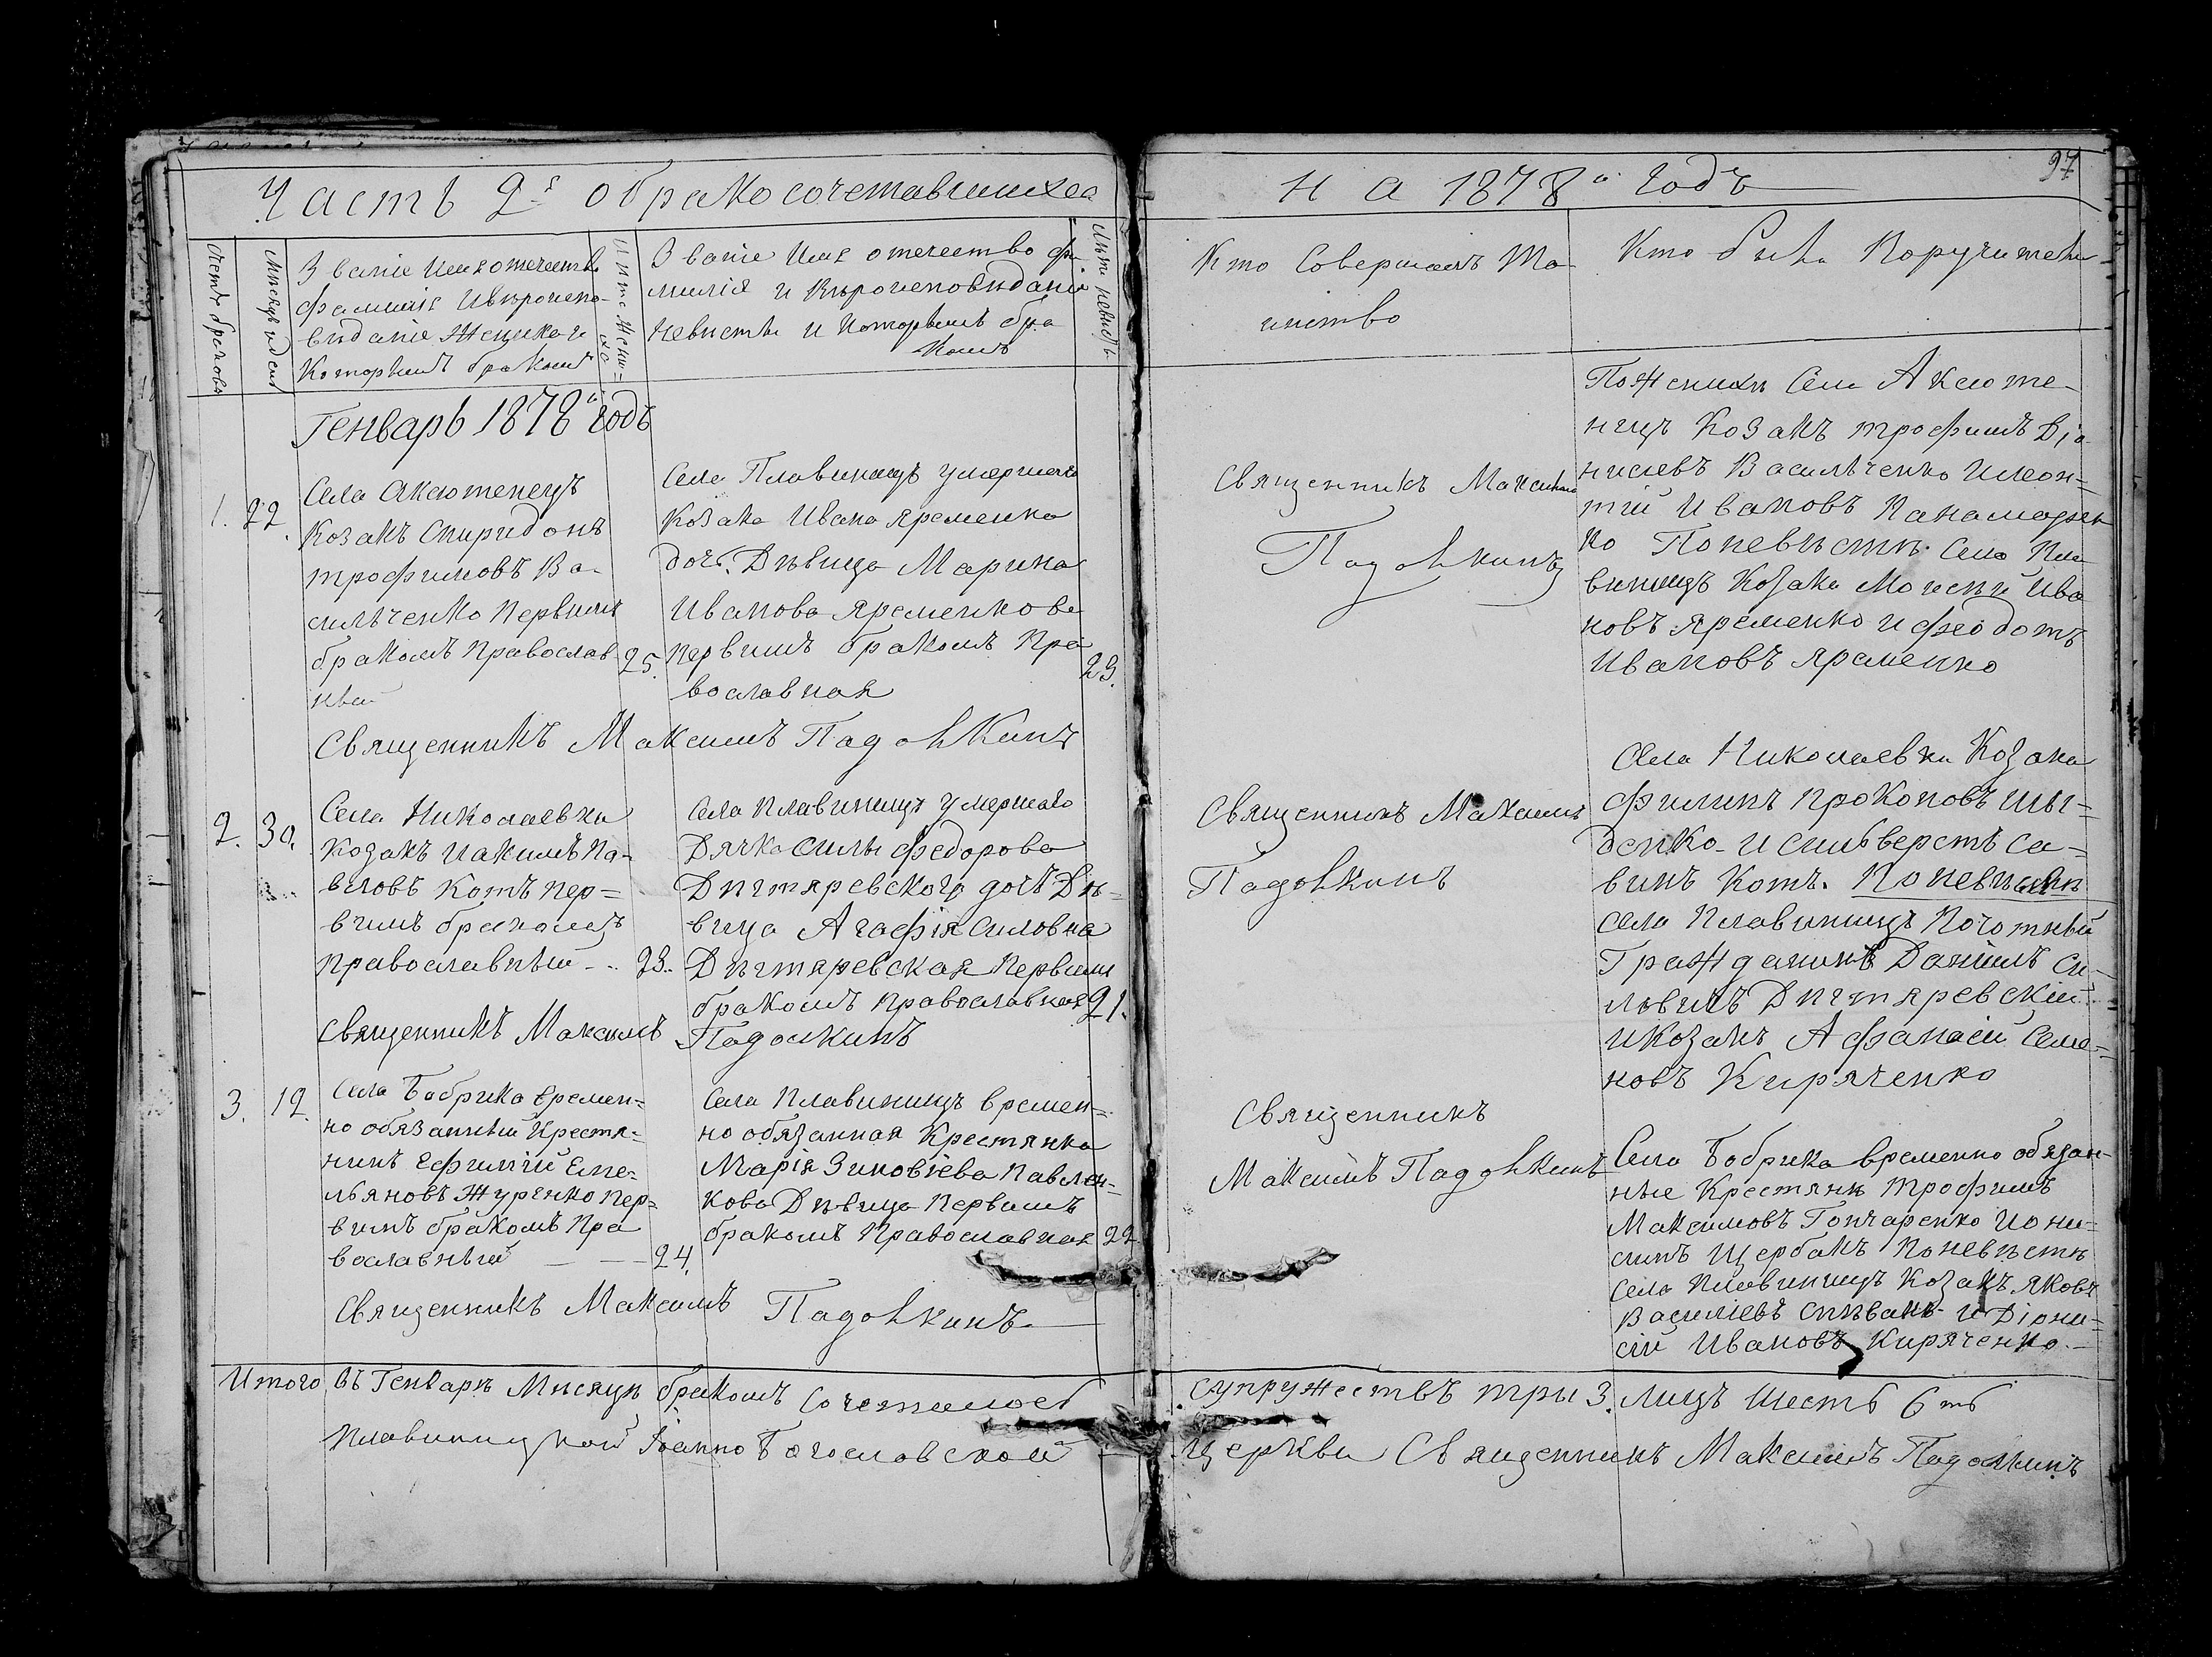 Часть 2я о бракосочетавшихся
на 1878й годъ
97
Счетъ браковъ
Мѣсяцъ и день
Званіе Имя отечество
фамилія Ивѣроиспо-
вѣданіе Жениха и
Которымъ бракомъ
Лѣта Жени-
ха
Званіе Имя отечество фа-
милія и Вѣроисповѣданіе
Невѣсты и Которымъ бра
комъ
Лѣта невѣсты
Кто Совершалъ Та-
инство
Кто были Поручители
Генварь 1878й годъ
1. 22.
Села Аксютенецъ
Козакъ Спиридонъ
трофимовъ Ва-
сильченко Первымъ
бракомъ Православ
ный
25.
Села Плавинищъ умершаго
Козака Ивана Яременка
дочь. Дѣвица Марина
Иванова Яременкова
первымъ бракомъ Пра
вославная
23.
Священникъ Максимъ
Падолкинъ
По Женихѣ Села Аксюте-
нецъ Козакъ трофимъ Діо-
нисіевъ Васильченко Илеон=
тій Ивановъ Панамарен
ко По невѣстѣ. Села Пла
винищъ Козаки Моисей Ива
новъ Яременко и феодотъ
Ивановъ Яременко
Священникъ Максимъ Падолкинъ
2. 30.
Села Николаевки
Козакъ Иакимъ Па-
вловъ Котъ пер=
вымъ бракомъ
православный - .. 23..
Села Плавинищъ умершаго
Дячка Силы Федорова
Дигтяревского дочь Дѣ=
вица Агафія Силовна
Дигтяревская Первымъ
бракомъ православная 21.
Священникъ Максимъ
Падолкинъ
Села Николаевки Козаки
Филипъ Прокоповъ Шы=
денко и Сильверстъ Са=
винъ Котъ. По невѣстѣ
села Плавинищъ Почотный
Гражданинъ Даніилъ Си-
львинъ Дигтяревскій
и Козакъ Афанасій Семе=
новъ Киряченко
Священникъ Максимъ Падолкинъ
3. 12.
Села Бобрика времен=
но обязанный Крестя=
нинъ Ефимій Еме-
льяновъ Журенко пер=
вымъ бракомъ Пра
вославный — — 24.
Села Плавинищъ времен=
но обязанная Крестянка
Марія Зиновіева Павлен=
кова Дѣвица Первымъ
бракомъ Православная 22
Священникъ
Максимъ Падолкинъ
Села Бобрика временно обязан-
ные Крестянѣ Трофимъ
Максимовъ Гончаренко
Щербакъ По невѣстѣ
села Плавинищъ Козакъ Яковъ
Василіевъ Спѣвакъ и Діони=
сій Ивановъ Киряченко.—
Священникъ Максимъ Падолкинъ
Итого въ Генварѣ Мѣсяцѣ бракомъ Сочеталось
супружествъ тры 3. Лицъ Шесть 6ть
Плавинищкой Іоанно Богословской
Церкви Священникъ Максимъ Падолкинъ